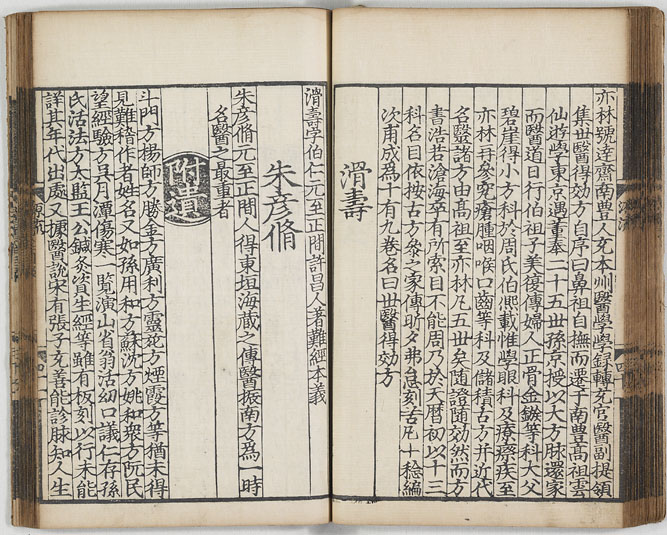 亦林號達齋南豊人充本州醫學學録轉充官醫副提領
集世醫得効方自序曰鼻祖自撫而遷于南豊高祖雲
仙遊學東京遇董奉二十五世孫京授以大方脉還家
而醫道日行伯祖子美復傳婦人正骨金鏃等科大父
碧崖得小方科於周氏伯熙載惟學眼科及療瘵疾至
亦林再參究瘡腫咽喉口齒等科及儲積古方并近代
名醫諸方由高祖至亦林凡五世矣隨證隨効然而方
書浩若滄海卒有所索目不能周乃於天曆初以十三
科名目依按古方參之家傳昕夕弗怠刻苦凡十稔編
次甫成為十有九卷名曰世醫得効方
滑壽
滑壽字伯仁元至正間許昌人著難經本義
朱彦脩
朱彦脩元至正間人得東垣海藏之傳醫振南方為一時
名醫之最重者
附遺
斗門方楊師方勝金方廣利方靈苑方煙霞方等猶未得
見難稽作者姓名又如孫用和方蘇沈方姚和衆方阮民
望經驗方吴月潭傷寒一覧演山省翁活㓜口議仁存孫
氏活法方太監王公鍼灸資生經等雖有板刻以行未能
詳其年代出處又據醫説宋有張子充善能診脉知人生